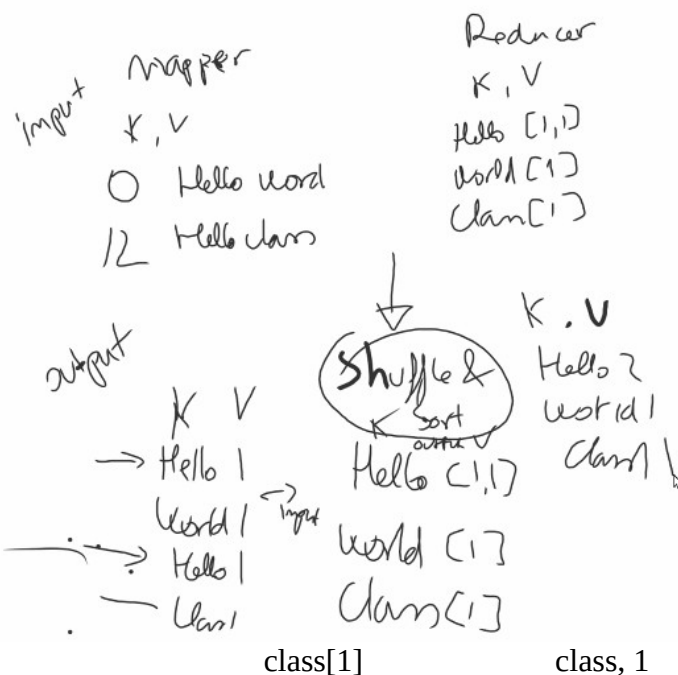 mapper
input
K, V
0 Hello word
12 Hello class
Reducer
K, V
Hello [1,1]
world [1]
Class [1]
output
K V
Hello 1
World 1
Hello 1
Class 1
input
Shuffle &
sort
K output V
Hello [1,1]
world [1]
Class [1]
K, V
Hello 2
world 1
Class 1
class[1]
class, 1